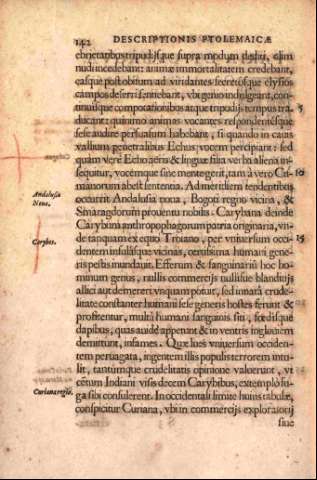 142 DESCRIPTIONIS PTOLEMAICÆ
ebrietatibus tripudijsque supra modum dediti, olim
nudi incedebant: animæ immortalitatem credebant,
easque post obitum ad viridantes secretosque elysios
campos deferri sentiebant, vbi genio indulgeant, con-
tinuisque compotationibus atque tripudijs tempus tra- 5
ducant: quinimo animas vocantes respondentesque
sese audire persuasum habebant, si quando in cauis
vallium penetralibus Echus vocem percipiant: sed
quàm verè Echo aëris & linguæ filia verba aliena in-
sequitur, vocemque sine mente gerit, tam à vero Cri- 10
manorum abest sententia. Ad meridiem tendentibus
Andalusia
Noua.
occurrit Andalusia noua, Bogoti regno vicina, &
Smaragdorum prouentu nobilis. Carybana deinde
Carybes.
Carybum anthropophagorum patria originaria, vn-
de tanquam ex equo Troiano, per vniuersum occi- 15
dentem insulasque vicinas, teterrima humani gene-
ris pestis inundauit. Efferum & sanguinariū hoc ho-
minum genus, nullis commercijs nullisue blanditijs
allici aut demereri vnquam potuit, sed innata crude-
litate constanter humani sese generis hostes ferunt &
profitentur, multâ humani sanguinis siti, fœdisque
dapibus, quas auidè appetunt & in ventris ingluuiem
demittunt, infames. Quæ lues vniuersum occiden-
tem peruagata, ingentem illis populis terrorem intu-
lit, tantumque crudelitatis opinione valuerunt, vt
cētum Indiani visis decem Carybibus, extemplo fu-
ga sibi consulerent. In occidentali limite huius tabulæ,
Curiana regio.
conspicitur Curiana, vbi in commercijs exploratorij
siue